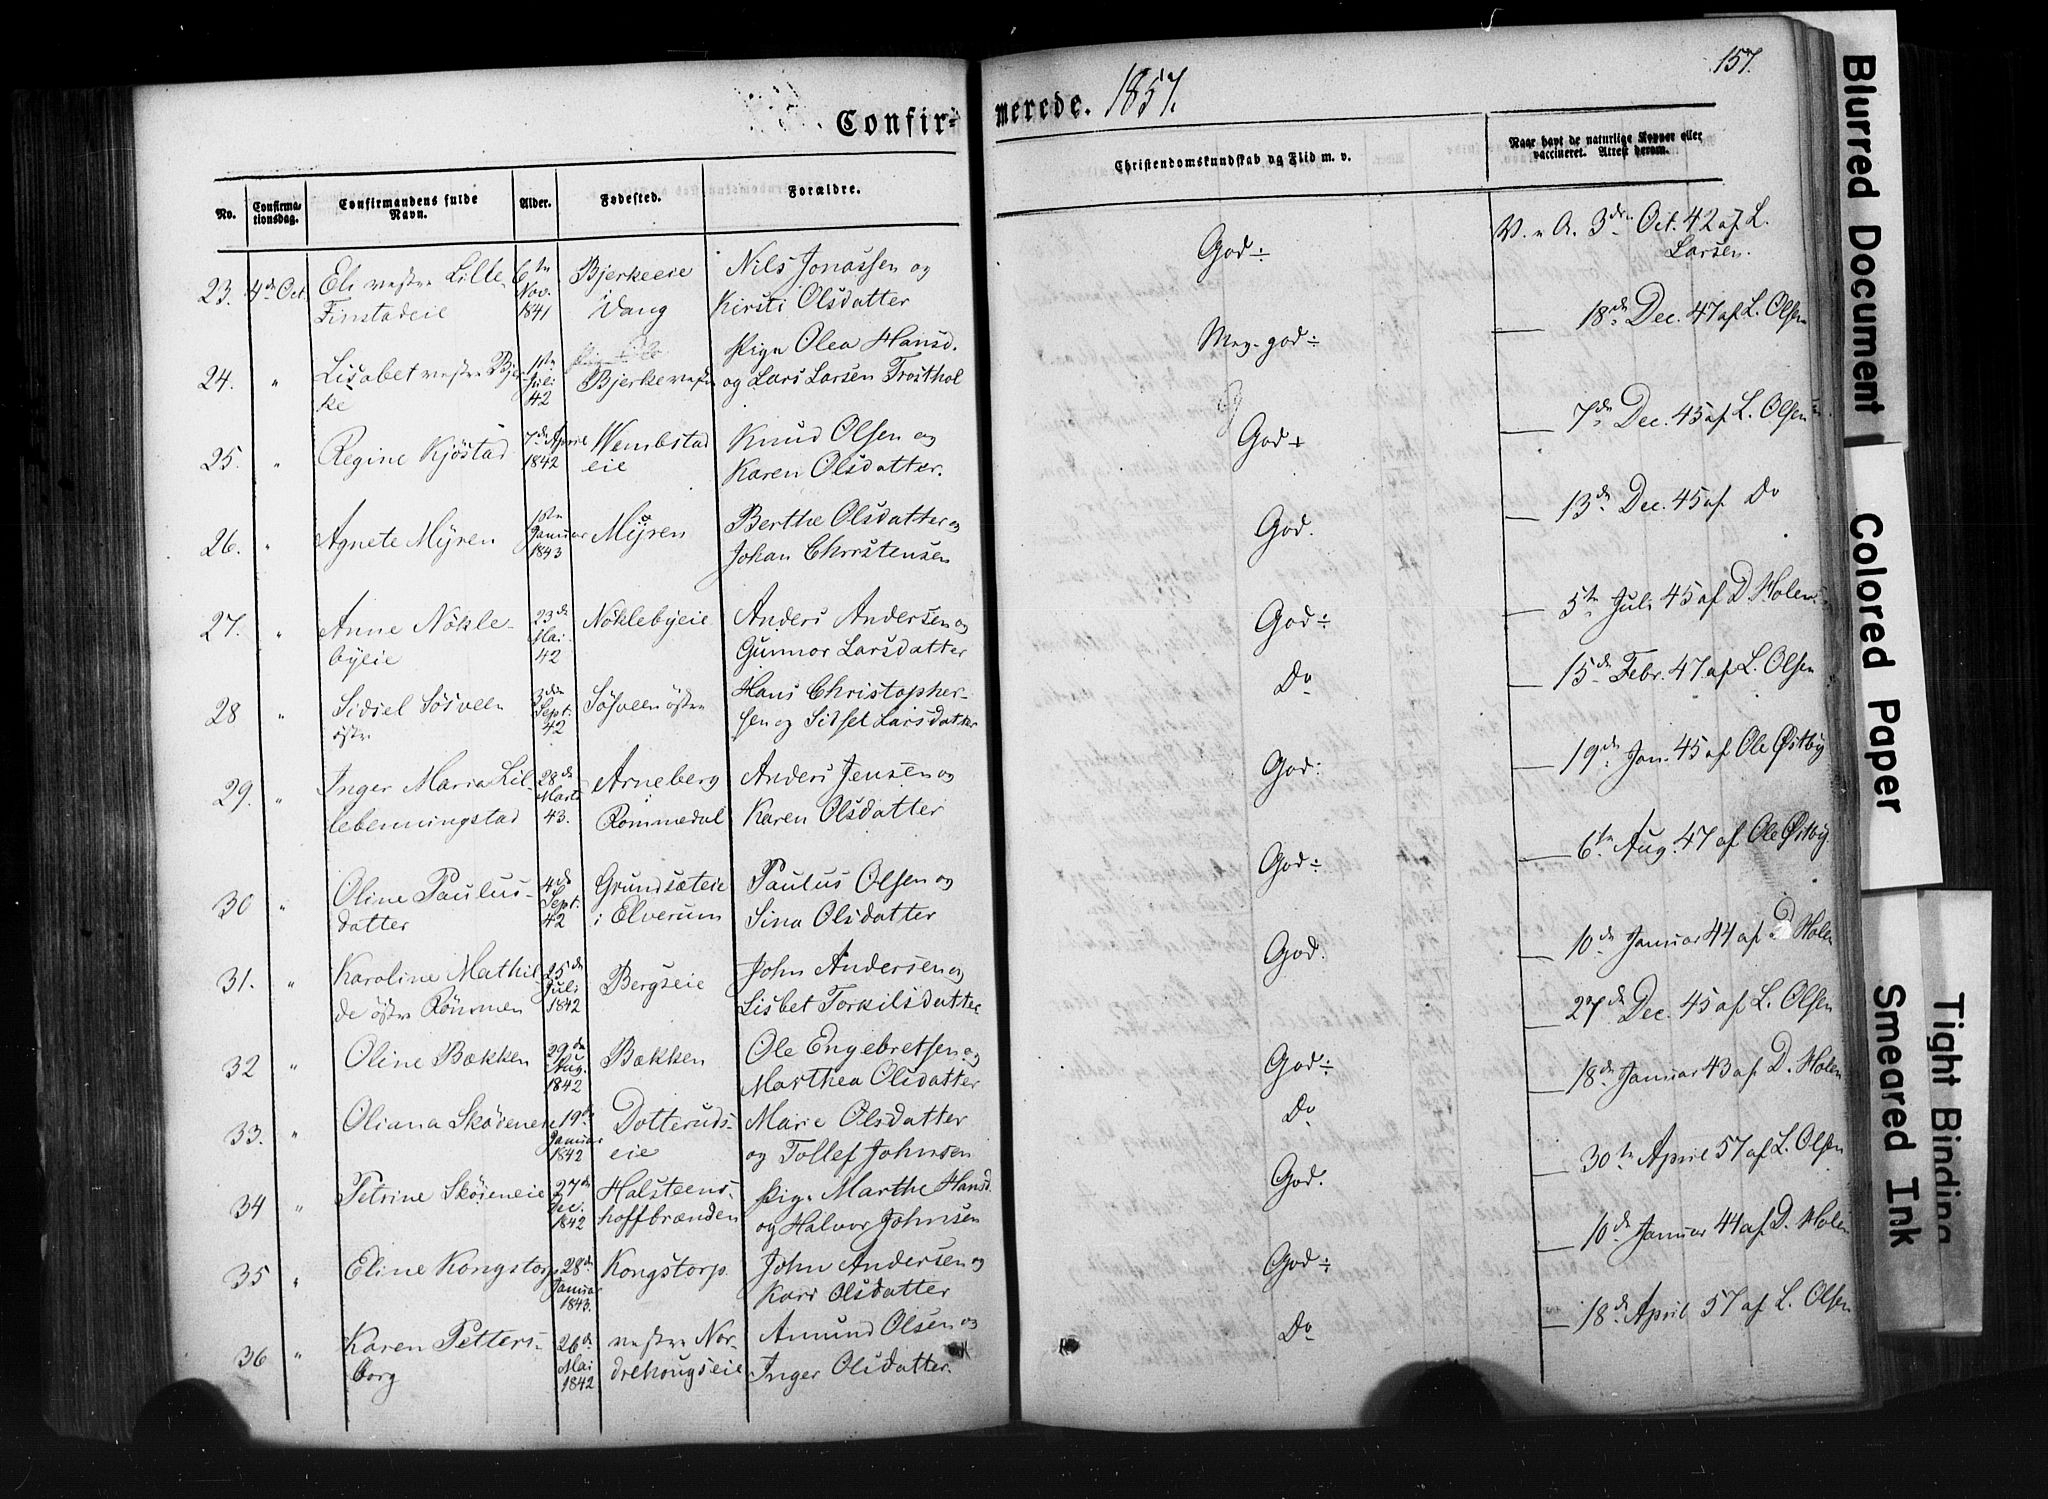 157.
Confir-
merede. 1857.
No.
Confirma-
tionsdag.
Confirmandens fulde
Navn.
Alder.
Fødested.
Forældre.
Christendomskundskab og Flid m. v.
Naar havt de naturlige Kopper eller
vaccineret. Attest derom.
23. 4de Oct. Eli vestre Lille 6te Bjerkeeie Nils Jonassen og God÷ V. A. 3die Oct. 42 af L.
Finstadeie Nov. i Vang Kirsti Olsdatter Larsen.
1841
24. " Lisabet vestre Bjer 1ste Bjerkevestre Pige Olea Hansd. Meg. god÷ — 18de Dec. 47 af L. Olsen
ke Juli og Lars Larsen Trosthol
42
25. " Regine Kjöstad 7de April Wembstad Knud Olsen og God÷ — 7de Dec. 45 af L. Olsen
1842 eie Karen Olsdatter.
26. " Agnete Myren 1ste Myren Berthe Olsdatter og God. — 13de Dec. 45 af Do
Januar Johan Christensen
1843
27. " Anne Nökle- 23de Nöklebyeie Anders Andersen og God÷ — 5te Juli 45 af D. Holen
byeie Mai Gunnor Larsdatter
42
28 " Sidsel Sösveen 3die Sösveen östre Hans Christopher- Do — 15de Febr. 47 af L. Olsen
östre Sept. sen og Sidsel Larsdatter
42
29. " Inger Maria Lil- 28de Arneberg Anders Jensen og God: — 19de Jan. 45 af Ole Østby
lebenningstad Marts i Rommedal Karen Olsdatter
43.
30 " Oline Paulus- 4de Grundsæteie Paulus Olsen og God÷ — 6te Aug. 47 af Ole Østby.
datter Sept. i Elverum Sina Olsdatter
42
31. " Karoline Mathil 25de Bergseie John Andersen og God. — 10de Januar 44 af D. Holen
de östre Rönmen Juli Lisbet Torkilsdatter
1842
32 " Oline Bækken 29de Bækken Ole Engebretsen og God÷ — 27de Dec. 45 af L. Olsen
Aug. Marthea Olsdatter
1842
33. " Oliana Sköieneie 19de Dotteruds- Marie Olsdatter Do — 18de Januar 43 af D. Holen
Januar eie og Tollef Johnsen
1842
34 " Petrine Sköieneie 27de Halsteens- Pige Marthe Hansd. God. — 30te April 57 af L. Olsen
Dec. hoffbrænden og Halvor Johnsen
1842
35 " Eline Kongstorp 28de Kongstorp. John Andersen og God÷ — 10de Januar 44 af D. Holen
Januar Kari Olsdatter
1843.
36 " Karen Petters- 26de vestre Nor- Amund Olsen og Do — 18de April 57 af L. Olsen
borg Mai drehougseie Inger Olsdatter.
1842
Blurred Document
Colored Paper
Smeared Ink
Tight Binding